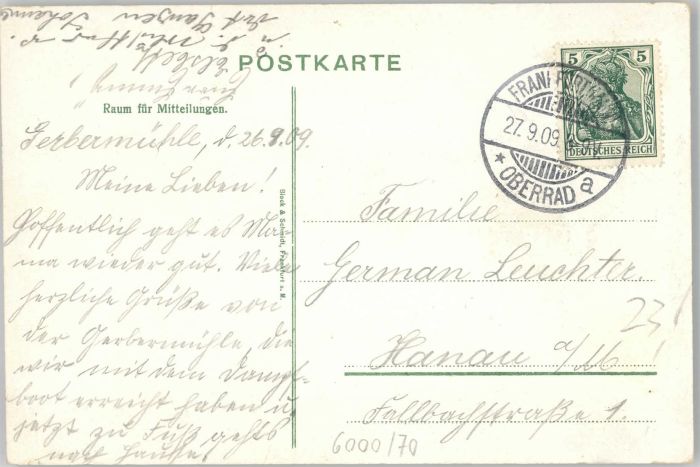 POSTKARTE
Raum für Mitteilungen.
Gerbermühle, d. 26.9.09.
Meine Lieben!
Hoffentlich geht es Ma-
ma wieder gut. Viele
herzliche Grüße von
der Gerbermühle, die
wir mit dem Dampf-
boot erreicht haben u.
jetzt zu Fuß gehts
nach Hause.
Elsbeth
Block & Schmidt, Frankfurt a. M.
5 5
DEUTSCHES REICH
FRANKFURT
27.9.09.
* OBERRAD a
Familie
German Leuchter.
Hanau a/M!
Fallbachstraße 1.
23
6000/70